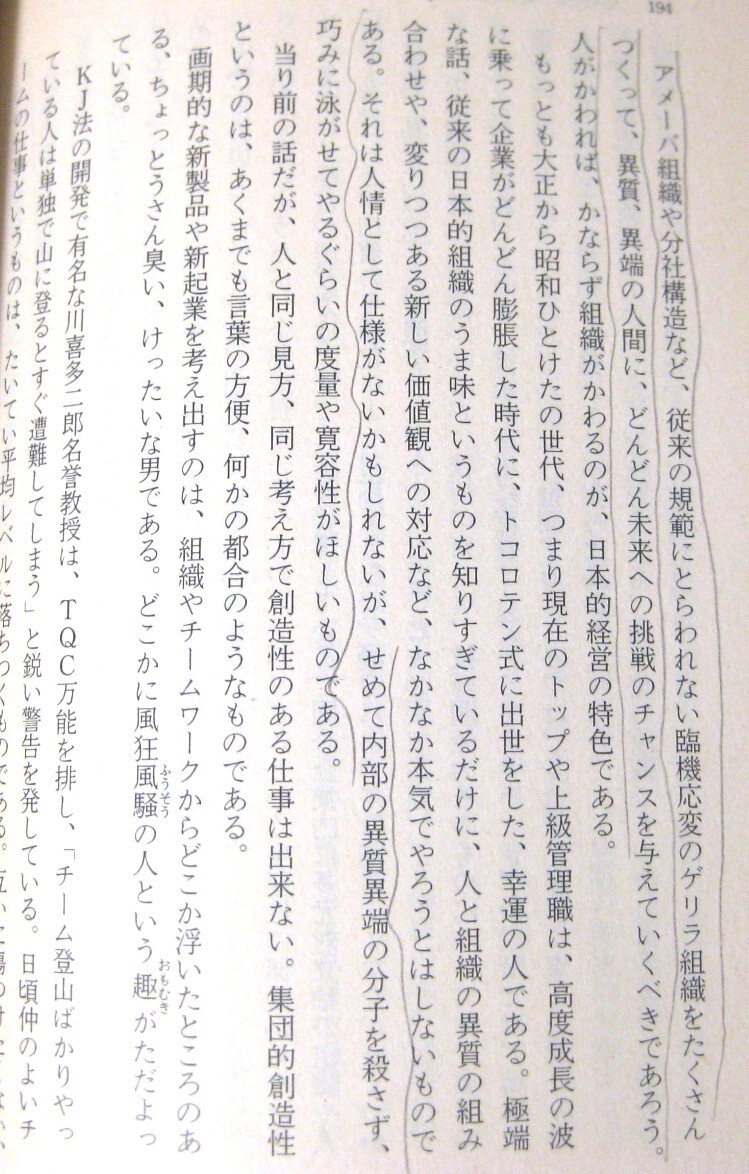 194
アメーバ組織や分社構造など、従来の規範にとらわれない臨機応変のゲリラ組織をたくさん
つくって、異質、異端の人間に、どんどん未来への挑戦のチャンスを与えていくべきであろう。
人がかわれば、かならず組織がかわるのが、日本的経営の特色である。
もっとも大正から昭和ひとけたの世代、つまり現在のトップや上級管理職は、高度成長の波
に乗って企業がどんどん膨脹した時代に、トコロテン式に出世をした、幸運の人である。極端
な話、従来の日本的組織のうま味というものを知りすぎているだけに、人と組織の異質の組み
合わせや、変りつつある新しい価値観への対応など、なかなか本気でやろうとはしないもので
ある。それは人情として仕様がないかもしれないが、せめて内部の異質異端の分子を殺さず、
巧みに泳がせてやるぐらいの度量や寛容性がほしいものである。
当り前の話だが、人と同じ見方、同じ考え方で創造性のある仕事は出来ない。集団的創造性
というのは、あくまでも言葉の方便、何かの都合のようなものである。
画期的な新製品や新起業を考え出すのは、組織やチームワークからどこか浮いたところのあ
る、ちょっとうさん臭い、けったいな男である。どこかに風狂風騒ふうそうの人という趣おもむきがただよっ
ている。
KJ法の開発で有名な川喜多二郎名誉教授は、TQC万能を排し、「チーム登山ばかりやっ
ている人は単独で山に登るとすぐ遭難してしまう」と鋭い警告を発している。日頃仲のよいチ
ームの仕事というものは、たいてい平均レベルに落ちつくものである。互いに傷つけたくない、